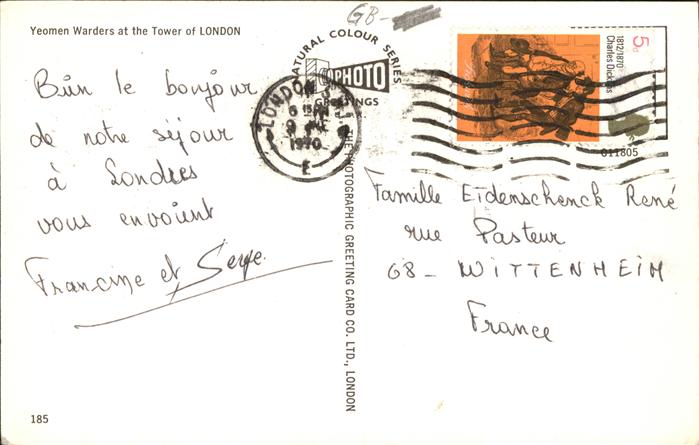 Yeomen Warders at the Tower of LONDON
GB-
NATURAL COLOUR SERIES
PHOTO
GREETINGS
THE PHOTOGRAPHIC GREETING CARD CO. LTD., LONDON
LONDON
1970
E
5d
1812/1870
Charles Dickens
011805
Bùn le bonjour
de notre séjour
à Londres
vous envoient
Francine et Serge.
Famille Eidenschenck René
rue Pasteur
68 - WITTENHEIM
France
185